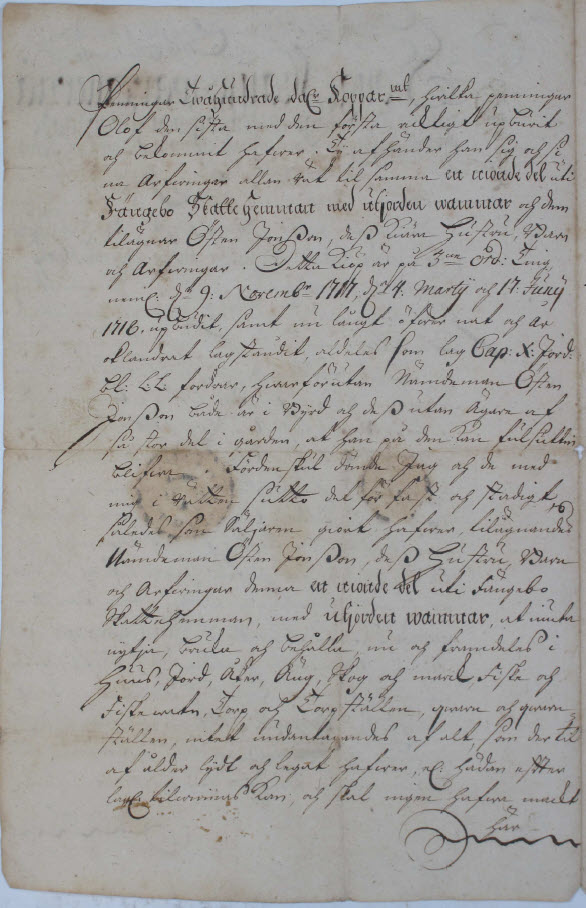 Penningar Twåhundrade dalr Kopparmt, hvilka penningar
Olof den sista med den första richtigt upburit
och bekommit hafwer. Ty afhänder han sig och si
na Arfwingar allan rätt til samma ett ottonde del uti
Fängebo Skatte Hemman med uljorden wammar och dem
tilägnar Östen Jonsson, dess Kiära Hustru, Barn
och Arfwingar. Detta Kiöp är på 3ne Ord: Ting
neml: d. 9: Novembr 1717, d. 4. Martij och 17 Junij
1718, upbudit, samt nu laugt öfwer nat och år
oklandrat lagståndit, aldeles som lag Cap: X: Jord:
bl: L.L. fordrar, hwarförutan Nämdeman Östen
Jonsson både är i Byrd och dess utan Ägare af
så stor del i gården, at han på den kan fulsutten
blifwa. Fördenskul dömde Jag och de med
mig i Rätten sutto det för fast och stadigt
således som Säljaren giort hafwer, tilägnandes
Nämdeman Östen Jonsson, dess Hustru, Barn
och Arfwingar denna ett ottonde del uti Fängebo
Skattehemman, med uljorden wammar, at niuta
nyttja, bruka och behålla, nu och framdeles i
Huus, Jord, Åker, Äng, Skog och mark, Fiske och
Fiskewatn, Torp och Torpställen, qwarn och qwarn
ställen, intet undantagandes af alt, som der til
af ålder lydt och legat hafwer, el: hädan effter
lagl: tilwinnas kan, och skal ingen hafwa macht
här